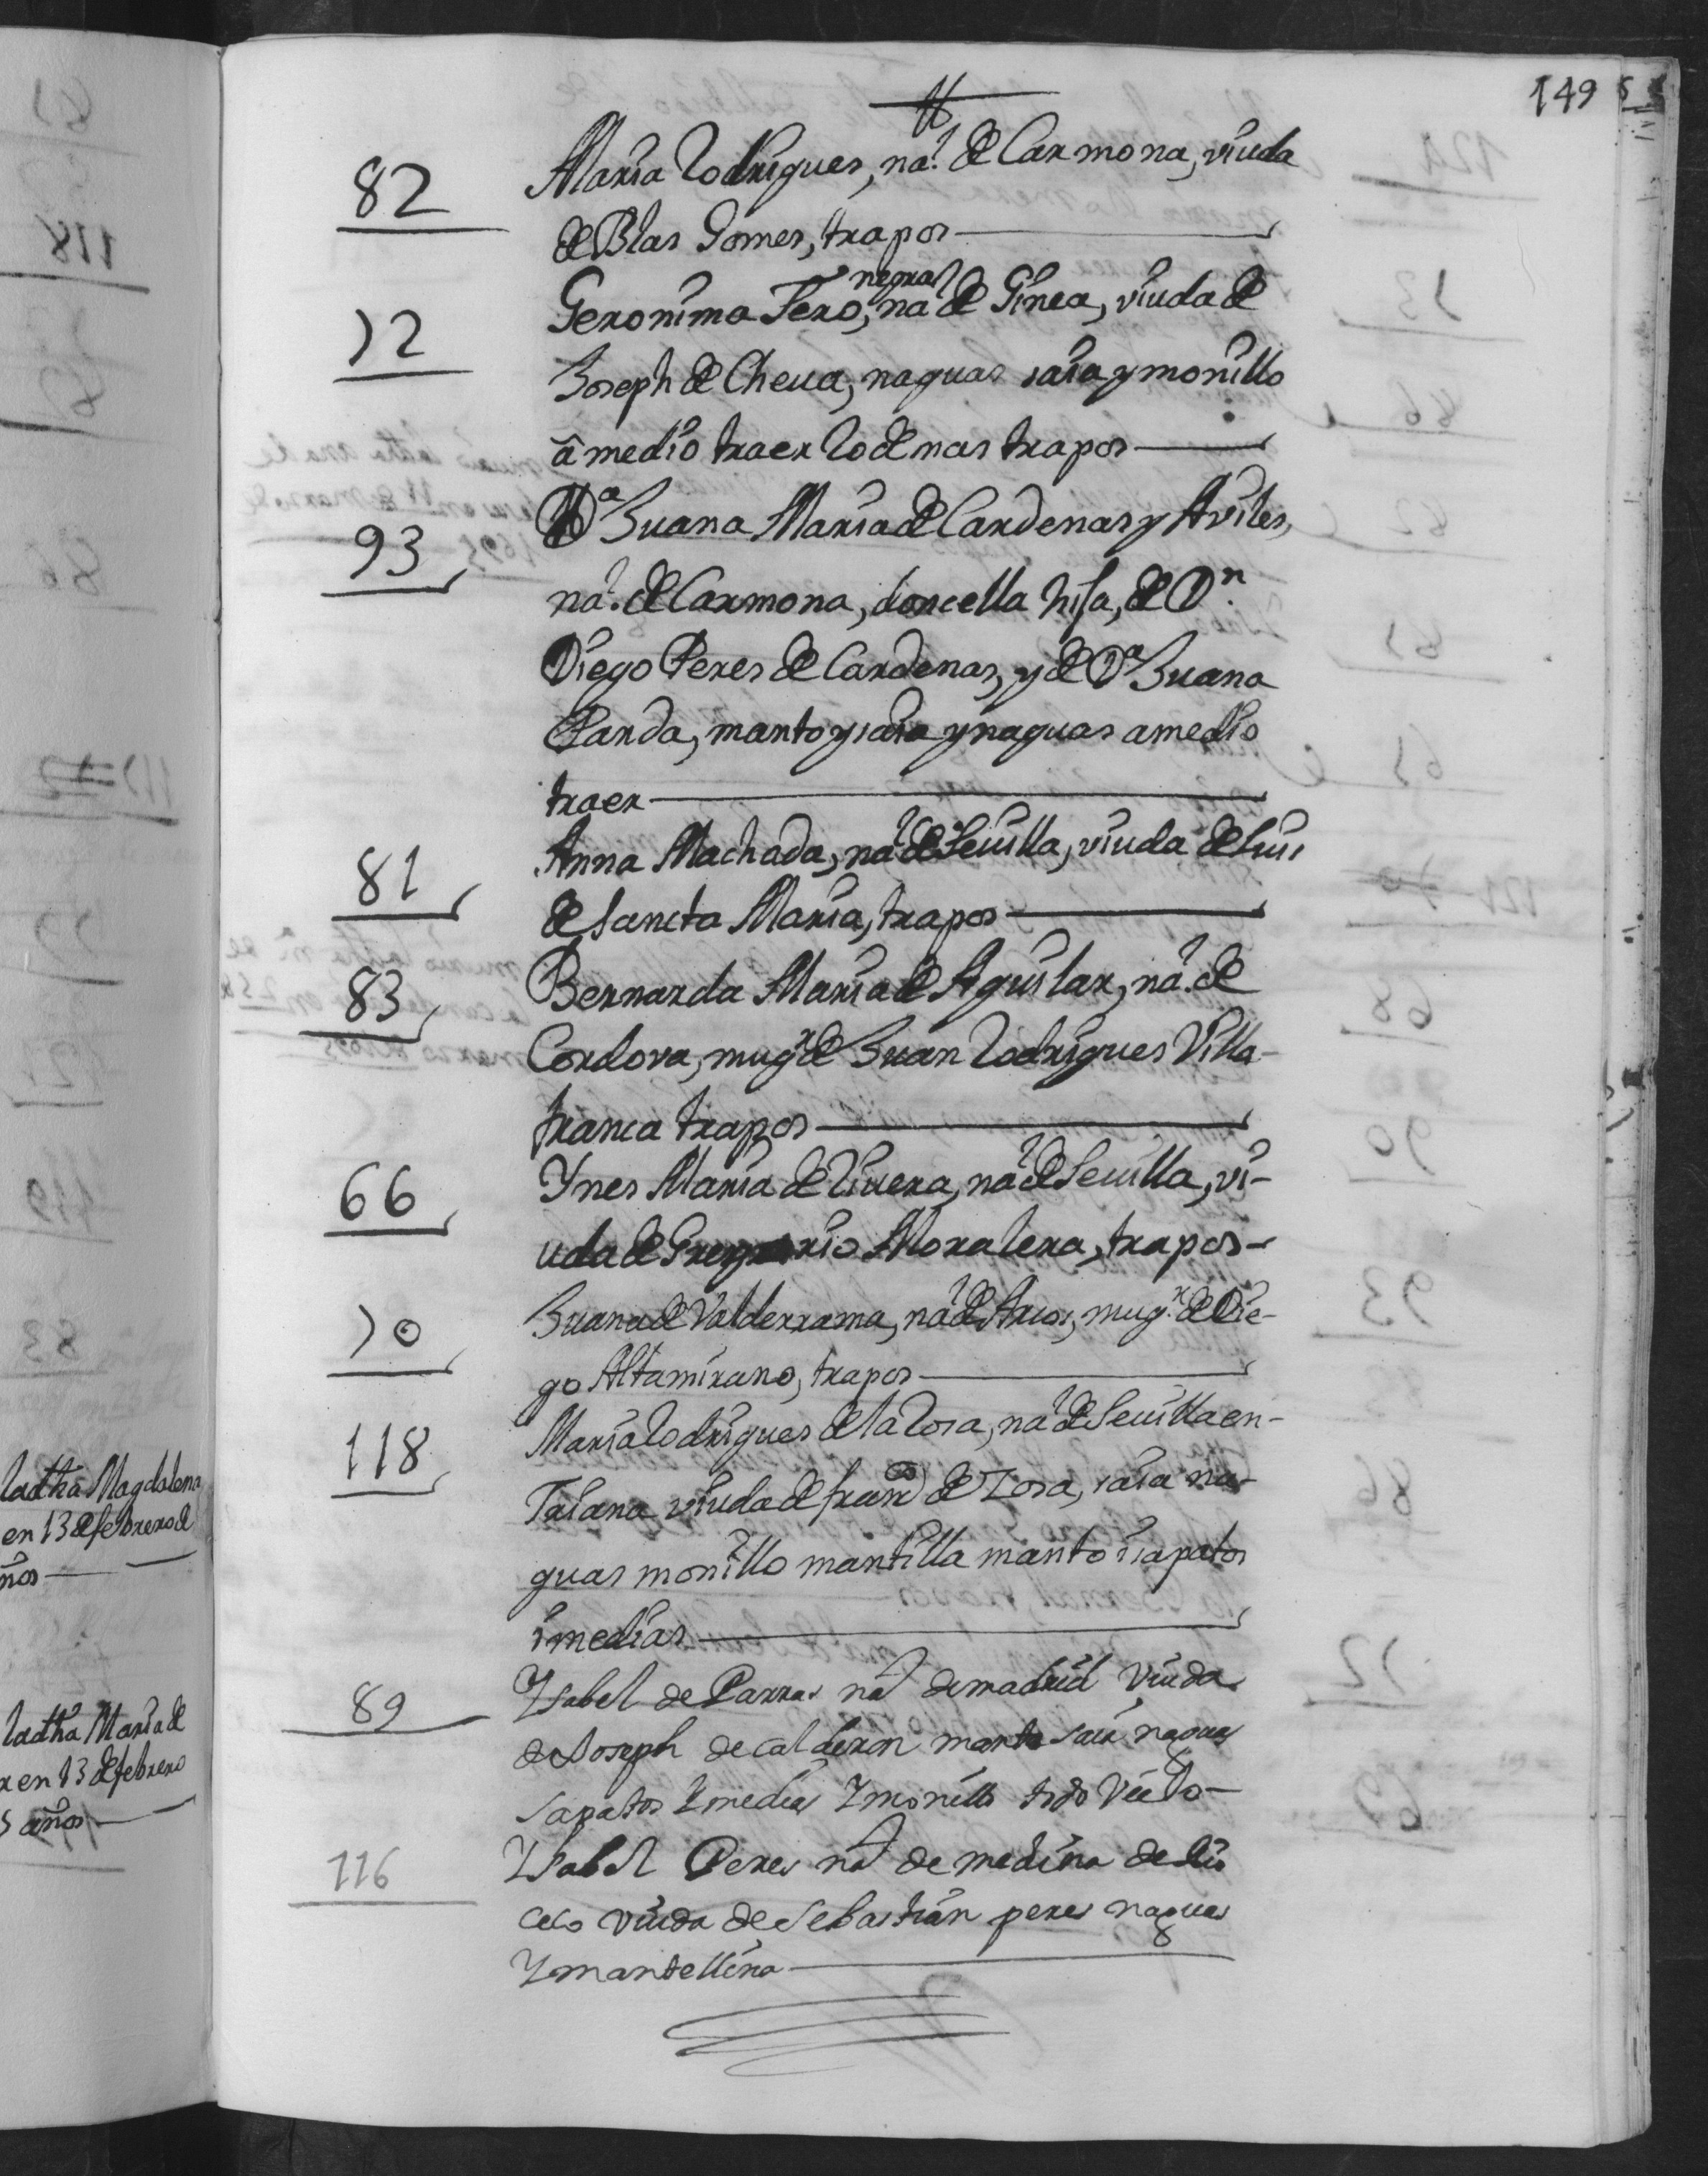 149
82
Maria Rodrigues, na.l de Carmona, viuda
de Blas Gomes, trapos
72
Geronima Fero, negra na.l de Ginea, viuda de
Joseph de Cheua, naguas saia y monillo
â medio traer lo demas trapos
93
Da Juana Maria de Cardenas y Aviles,
na.l de Carmona, doncella hija, de Dn.
Diego Peres de Cardenas, y de Da Juana
Parda, manto y saia y naguas a medio
traer
81
Anna Machada, na.l de Seuilla, viuda de Luis
de Sancta Maria, trapos
83
Bernarda Maria de Aguilar, na.l de
Cordova, mugr de Juan Rodrigues Villa-
franca trapos
66
Ynes Maria de Riuera, na.l de Seuilla, vi-
uda de Gregorio Moralera, trapos
70
Juana de Valderrama, na.l de Arcos, mugr. de Die-
go Altamirano, trapos
118
Maria Rodrigues de la Rosa, na.l de Seuilla en-
Triana viuda de franco de Rosa, saia na-
guas monillo mantilla manto i sapatos
i medias
89
Ysabel de Parras nal de madrid Viuda
de Joseph de calderon manto saia naguas
sapatos Y medias Y monillo todo Viejo
116
Ysabel Peres nal de medina de Rio
ceco viuda de Sebastian peres naguas
Y mantellina
ladha Magdalena
en 13 de febrero de
ños
ladha Maria de
r en 13 de febrero
s años